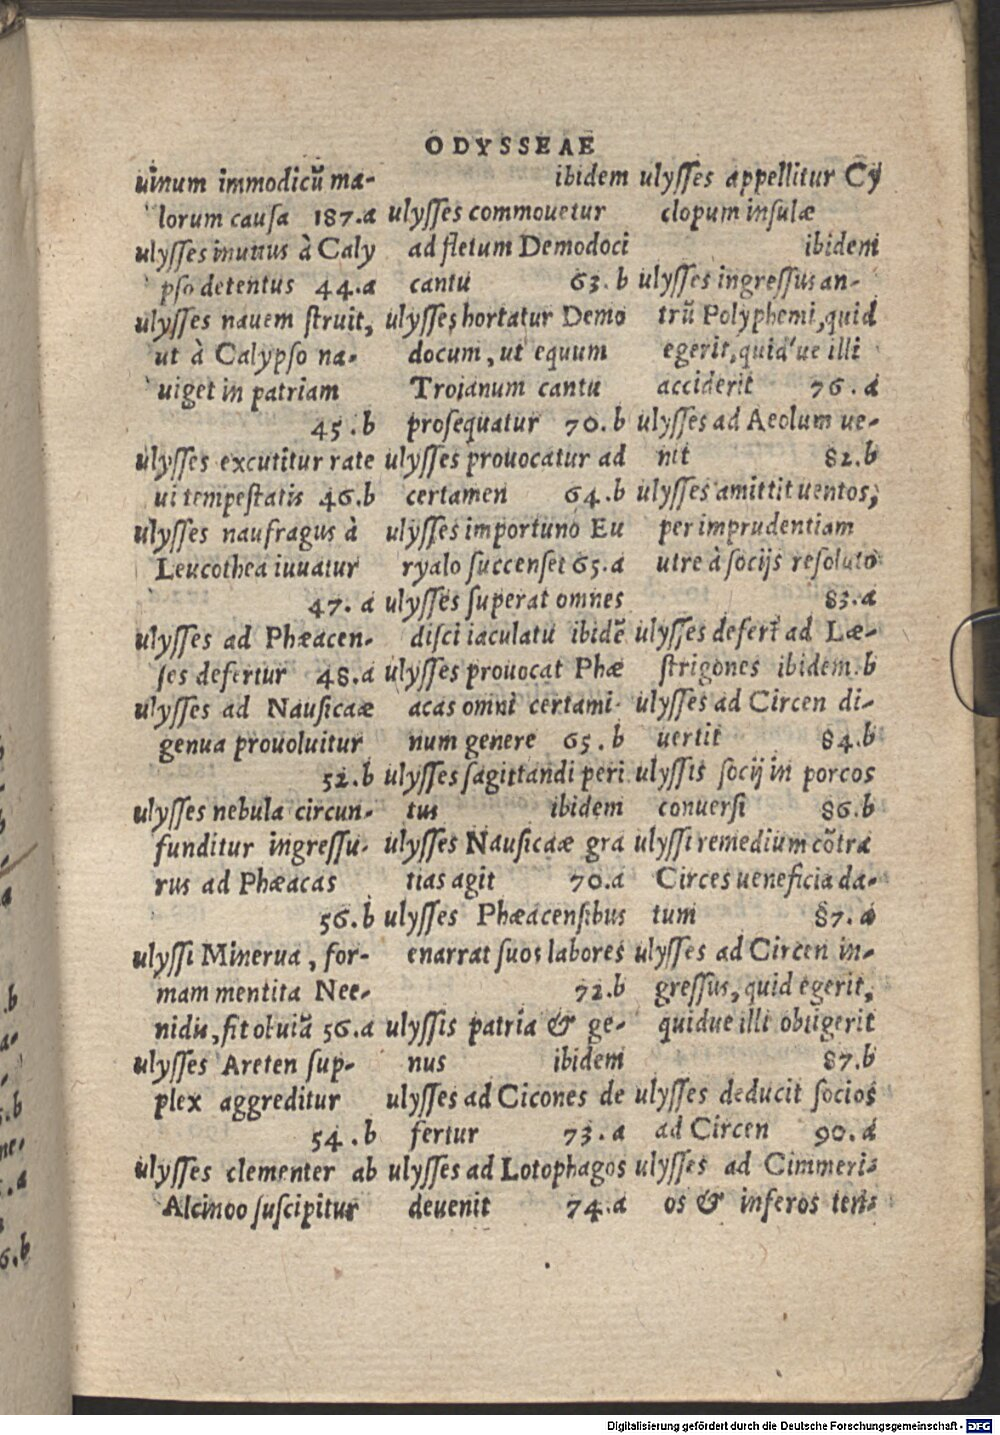 ODYSSEAE
uinum immodicũ ma-
lorum causa 187.a
ulysses inuitus à Caly
pso detentus 44.a
ulysses nauem struit,
ut à Calypso na-
uiget in patriam
45.b
ulysses excutitur rate
ui tempestatis 46.b
ulysses naufragus à
Leucothea iuuatur
47.a
ulysses ad Phæacen-
ses defertur 48.a
ulysses ad Nausicaæ
genua prouoluitur
52.b
ulysses nebula circun-
funditur ingressu-
rus ad Phæacas
56.b
ulyssi Minerua, for-
mam mentita Nee-
nidis, fit obuiã 56.a
ulysses Areten sup-
plex aggreditur
54.b
ulysses clementer ab
Alcinoo suscipitur
ibidem
ulysses commouetur
ad fletum Demodoci
cantu 63.b
ulysses hortatur Demo
docum, ut equum
Troianum cantu
prosequatur 70.b
ulysses prouocatur ad
certamen 64.b
ulysses importuno Eu
ryalo succenset 65.a
ulysses superat omnes
disci iaculatu ibidẽ
ulysses prouocat Phæ
acas omni certami-
num genere 65.b
ulysses sagittandi peri
tus ibidem
ulysses Nausicaæ gra
tias agit 70.a
ulysses Phæacensibus
enarrat suos labores
72.b
ulyssis patria & ge-
nus ibidem
ulysses ad Cicones de
fertur 73.a
ulysses ad Lotophagos
deuenit 74.a
ulysses appellitur Cy
clopum insulæ
ibidem
ulysses ingressus an-
trũ Polyphemi, quid
egerit, quid'ue illi
acciderit 76.a
ulysses ad Aeolum ue-
nit 82.b
ulysses amittit uentos,
per imprudentiam
utre à socijs resoluto
83.a
ulysses defert ad Læ-
strigones ibidem.b
ulysses ad Circen di-
uertit 84.b
ulyssis socij in porcos
conuersi 86.b
ulyssi remedium cõtra
Circes ueneficia da-
tum 87.a
ulysses ad Circen in-
gressus, quid egerit,
quidue illi obtigerit
87.b
ulysses deducit socios
ad Circen 90.a
ulysses ad Cimmeri-
os & inferos ten-
Digitalisierung gefördert durch die Deutsche Forschungsgemeinschaft - DFG